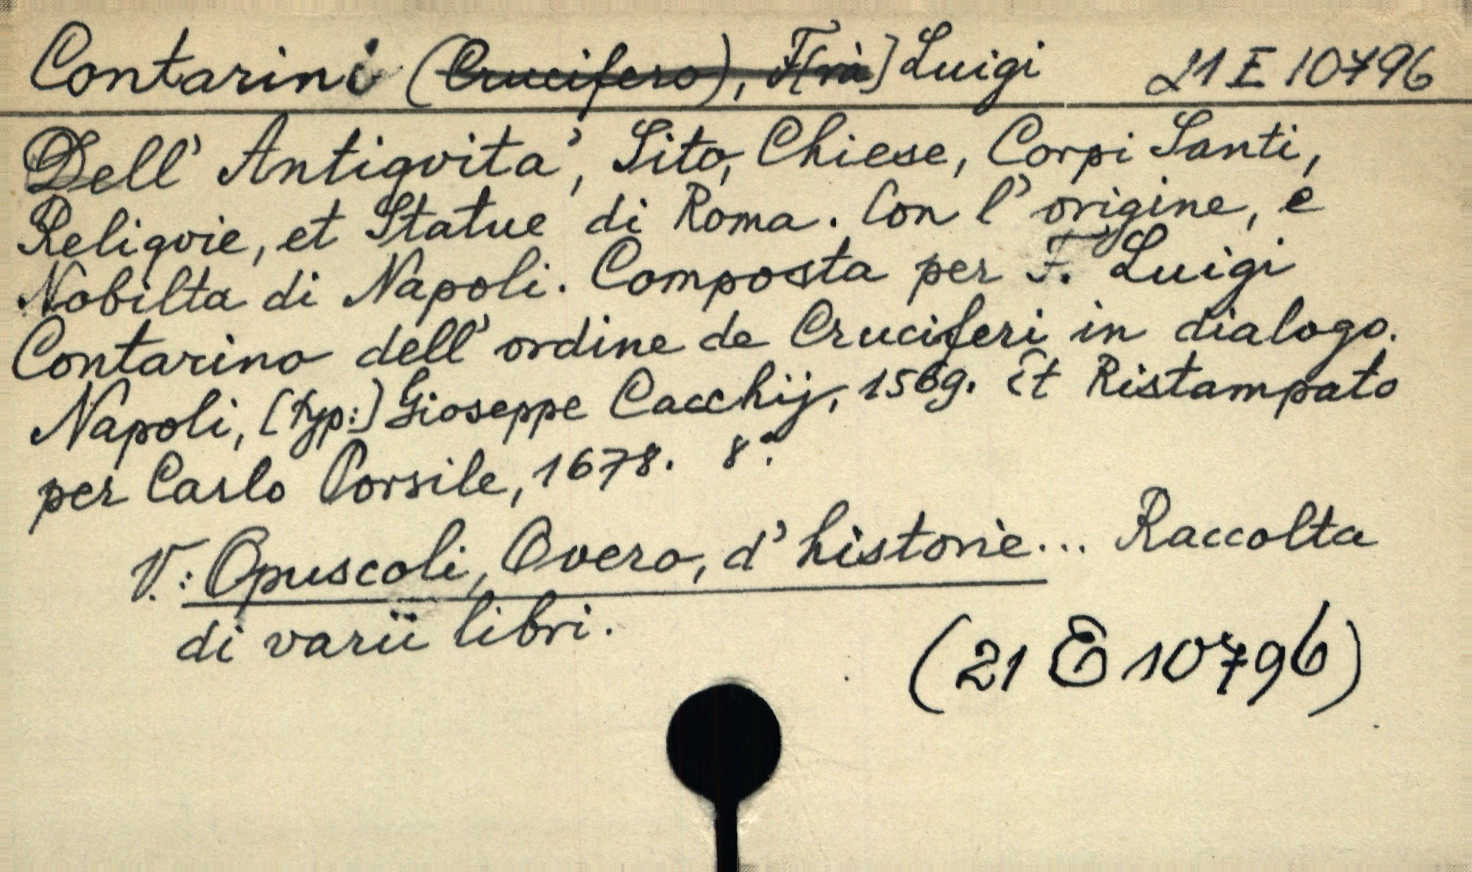 Contarini (Crucifero), F[rà] Luigi 21 E 10796
Dell' Antiqvita', Sito, Chiese, Corpi Santi,
Reliqvie, et Statue di Roma. Con l' origine, e
Nobilta di Napoli. Composta per F. Luigi
Contarino dell' ordine de Cruciferi in dialogo.
Napoli, [typ:] Gioseppe Cacchij, 1569. Et Ristampato
per Carlo Porsile, 1678. 8°.
V.: Opuscoli, Overo, d' historie... Raccolta
di varii libri.
(21 E 10796)